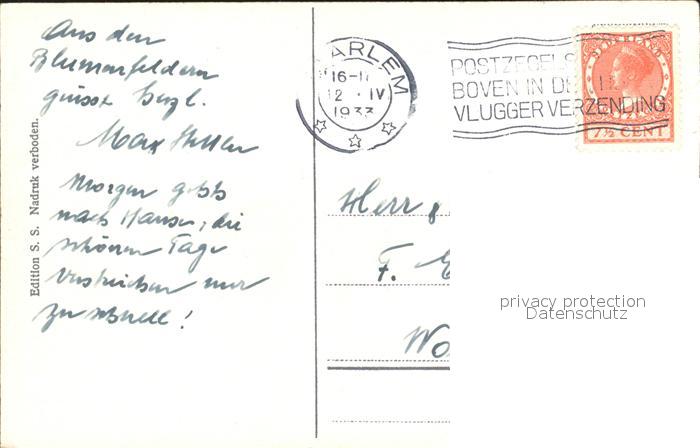 Aus den
Blumenfeldern
grüsst herzl.
Max
Morgen gehts
nach Hause, die
schönen Tage
verstrichen nur
zu schnell!
Edition S. S. Nadruk verboden.
HAARLEM
16-17
12 IV
1933
POSTZEGELS
BOVEN IN DE
VLUGGER VERZENDING
NEDERLAND
7½ CENT
Herr &
F.
Wo
privacy protection
Datenschutz